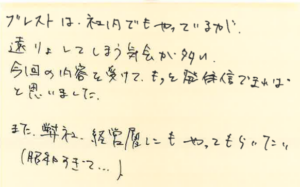 ブレストは、社内でもやっているが、
遠りょしてしまう気会が多い。
今回の内容を受けて、もっと発信できれば
と思いました。
また、弊社、経営層にもやってもらいたい
(昭和すぎて…)